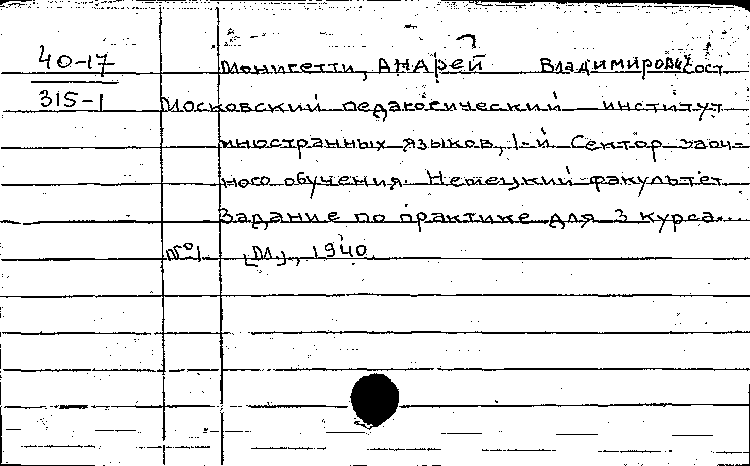 40-17
315-1
Монигетти, Андрей Владимирович сост.
Московский педагогический институт
иностранных языков, 1-й Сектор заоч-
ного обучения. Немецкий факультет.
Задание по практике для 3 курса...
№1. [М.], 1940.